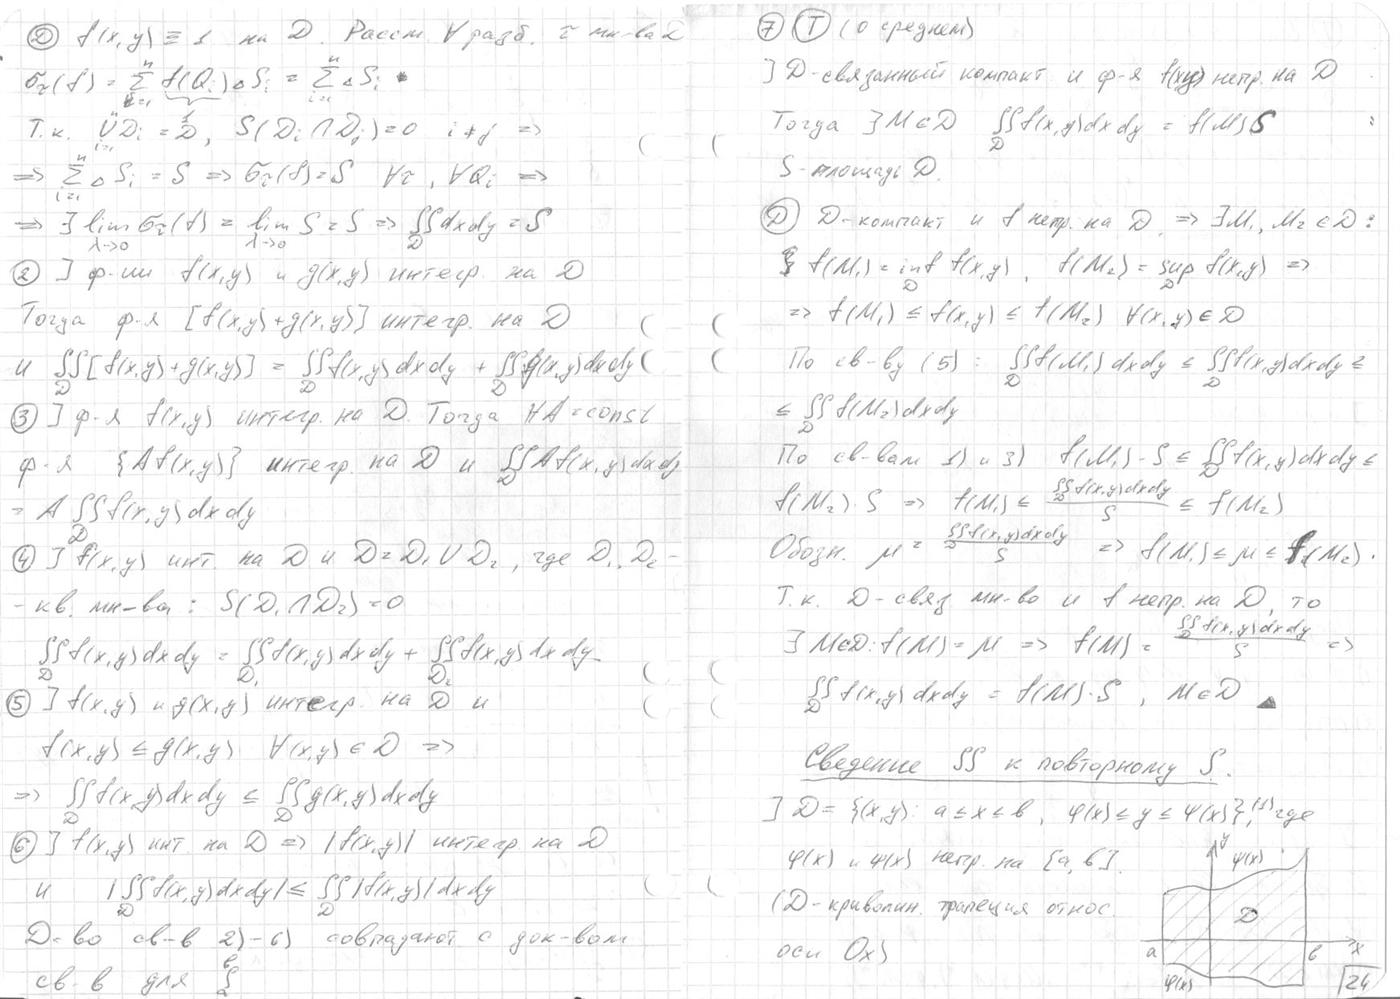 Ⓓ f(x,y) ≡ 1 на D. Рассм. ∀ разб. τ мн-ва D
σ_τ(f) = Σ_{i=1}^{n} f(Q_i) ΔS_i = Σ_{i=1}^{n} ΔS_i
1
Т.к. ⋃_{i=1}^{n} D_i = D, S(D_i ∩ D_j) = 0 i ≠ j =>
=> Σ_{i=1}^{n} ΔS_i = S => σ_τ(f) = S ∀τ, ∀Q_i =>
=> ∃ lim_{λ→0} σ_τ(f) = lim_{λ→0} S = S => ∬_D dxdy = S
② ] ф-ии f(x,y) и g(x,y) интегр. на D
Тогда ф-я [f(x,y)+g(x,y)] интегр. на D
и ∬_D [f(x,y)+g(x,y)] = ∬_D f(x,y)dxdy + ∬_D g(x,y)dxdy
③ ] ф-я f(x,y) интегр. на D. Тогда ∀A = const
ф-я {Af(x,y)} интегр. на D и ∬_D Af(x,y)dxdy
= A ∬_D f(x,y)dxdy
④ ] f(x,y) инт. на D и D = D₁ ∪ D₂, где D₁, D₂ -
- кв. мн-ва: S(D₁ ∩ D₂) = 0
∬_D f(x,y)dxdy = ∬_{D₁} f(x,y)dxdy + ∬_{D₂} f(x,y)dxdy
⑤ ] f(x,y) и g(x,y) интегр. на D и
f(x,y) ≤ g(x,y) ∀(x,y) ∈ D =>
=> ∬_D f(x,y)dxdy ≤ ∬_D g(x,y)dxdy
⑥ ] f(x,y) инт. на D => |f(x,y)| интегр. на D
и |∬_D f(x,y)dxdy| ≤ ∬_D |f(x,y)|dxdy
Д-во св-в 2)-6) совпадают с док-вом
св-в для ∫_a^b
⑦ Ⓣ (о среднем)
] D-связанный компакт и ф-я f(xy) непр. на D
Тогда ∃ M ∈ D ∬_D f(x,y)dxdy = f(M)S
S-площадь D.
Ⓓ D-компакт и f непр. на D => ∃ M₁, M₂ ∈ D:
f(M₁) = inf_D f(x,y), f(M₂) = sup_D f(x,y) =>
=> f(M₁) ≤ f(x,y) ≤ f(M₂) ∀(x,y) ∈ D
По св-ву (5): ∬_D f(M₁)dxdy ≤ ∬_D f(x,y)dxdy ≤
≤ ∬_D f(M₂)dxdy
По св-вам 1) и 3) f(M₁)·S ≤ ∬_D f(x,y)dxdy ≤
f(M₂)·S => f(M₁) ≤ ∬_D f(x,y)dxdy / S ≤ f(M₂)
Обозн. μ = ∬_D f(x,y)dxdy / S => f(M₁) ≤ μ ≤ f(M₂).
Т.к. D-связ. мн-во и f непр. на D, то
∃ M∈D: f(M) = μ => f(M) = ∬_D f(x,y)dxdy / S =>
∬_D f(x,y)dxdy = f(M)·S, M ∈ D ▲
Сведение ∬ к повторному ∫.
] D = {(x,y): a ≤ x ≤ b, φ(x) ≤ y ≤ ψ(x)},⁽¹⁾ где
φ(x) и ψ(x) непр. на [a,b].
(D-криволин. трапеция относ.
оси Ox)
y
ψ(x)
D
a
b
x
φ(x)
24